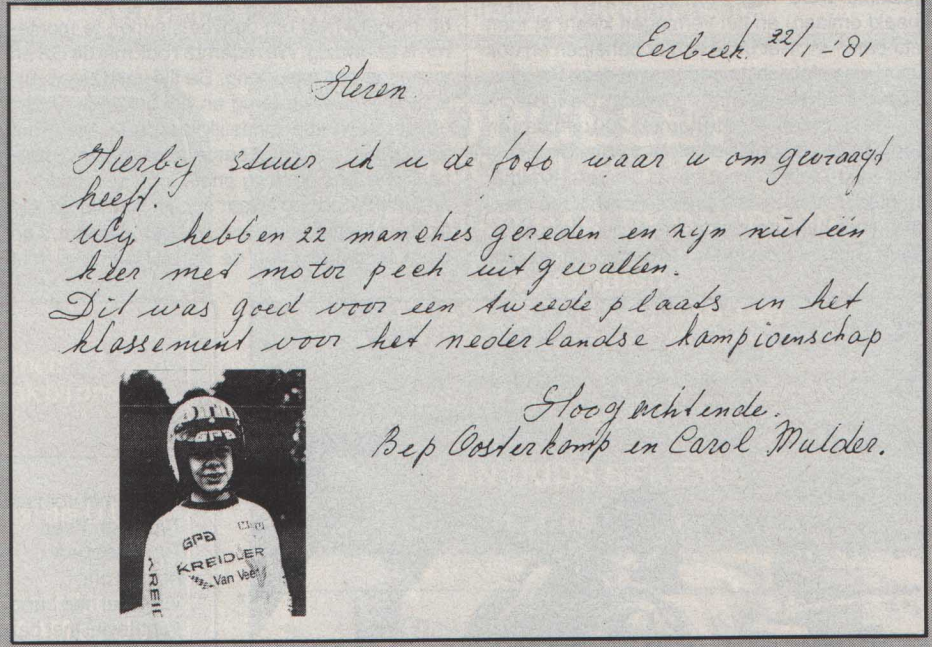 Eerbeek 22/1-'81
Heren
Hierby stuur ik u de foto waar u om gevraagt
heeft.
Wy hebben 22 manches gereden en zyn niet één
keer met motor pech uit gevallen.
Dit was goed voor een tweede plaats in het
klassement voor het nederlandse kampioenschap
Hoog achtende.
Bep Oosterkamp en Carol Mulder.
GPA
KREIDLER
Van Veen
KREID